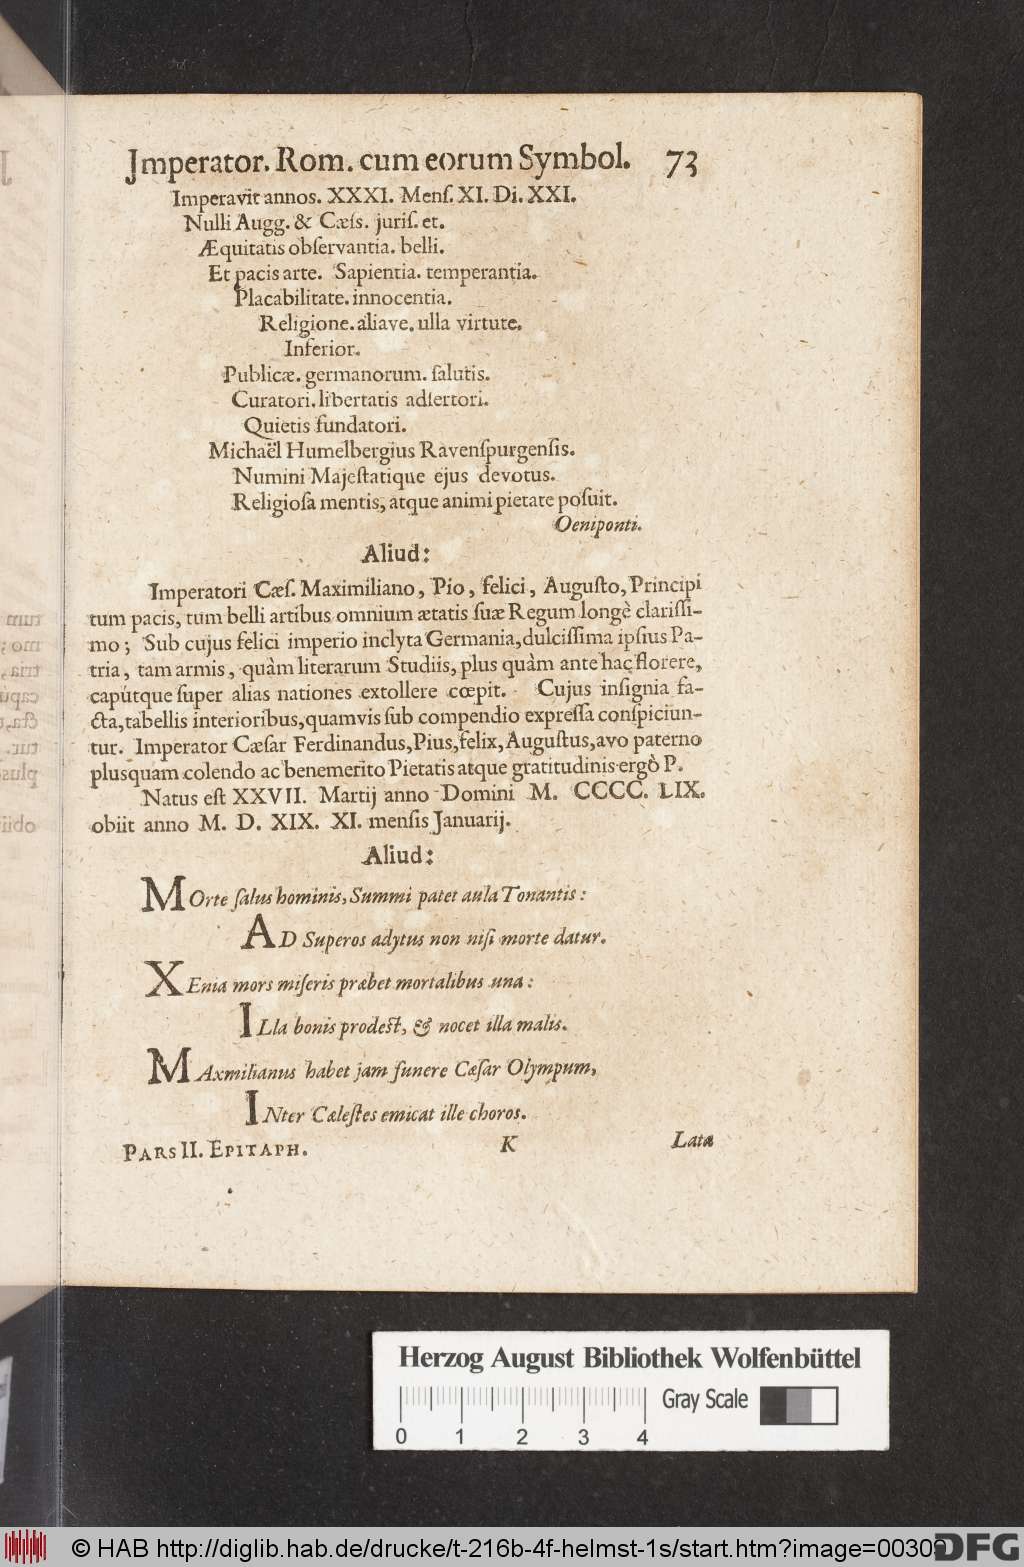 Jmperator. Rom. cum eorum Symbol. 73
Imperavit annos. XXXI. Menſ. XI. Di. XXI.
Nulli Augg. & Cæſs. juriſ. et.
Æquitatis obſervantia. belli.
Et pacis arte. Sapientia. temperantia.
Placabilitate. innocentia.
Religione. aliave. ulla virtute.
Inferior.
Publicæ. germanorum. ſalutis.
Curatori. libertatis adſertori.
Quietis fundatori.
Michaël Humelbergius Ravenſpurgenſis.
Numini Majeſtatique ejus devotus.
Religioſa mentis, atque animi pietate poſuit.
Oeniponti.
Aliud:
Imperatori Cæſ. Maximiliano, Pio, felici, Auguſto, Principi
tum pacis, tum belli artibus omnium ætatis ſuæ Regum longè clariſſi-
mo; Sub cujus felici imperio inclyta Germania, dulciſſima ipſius Pa-
tria, tam armis, quàm literarum Studiis, plus quàm ante hac florere,
capútque ſuper alias nationes extollere cœpit. Cujus inſignia fa-
cta, tabellis interioribus, quamvis ſub compendio expreſſa conſpiciun-
tur. Imperator Cæſar Ferdinandus, Pius, felix, Auguſtus, avo paterno
plusquam colendo ac benemerito Pietatis atque gratitudinis ergò P.
Natus eſt XXVII. Martij anno Domini M. CCCC. LIX.
obiit anno M. D. XIX. XI. menſis Januarij.
Aliud:
MOrte ſalus hominis, Summi patet aula Tonantis:
AD Superos adytus non niſi morte datur.
XEnia mors miſeris præbet mortalibus una:
ILla bonis prodeſt, & nocet illa malis.
MAxmilianus habet jam funere Cæſar Olympum,
INter Cæleſtes emicat ille choros.
PARS II. EPITAPH. K Lata
Herzog August Bibliothek Wolfenbüttel
Gray Scale
0 1 2 3 4
© HAB http://diglib.hab.de/drucke/t-216b-4f-helmst-1s/start.htm?image=00309
DFG